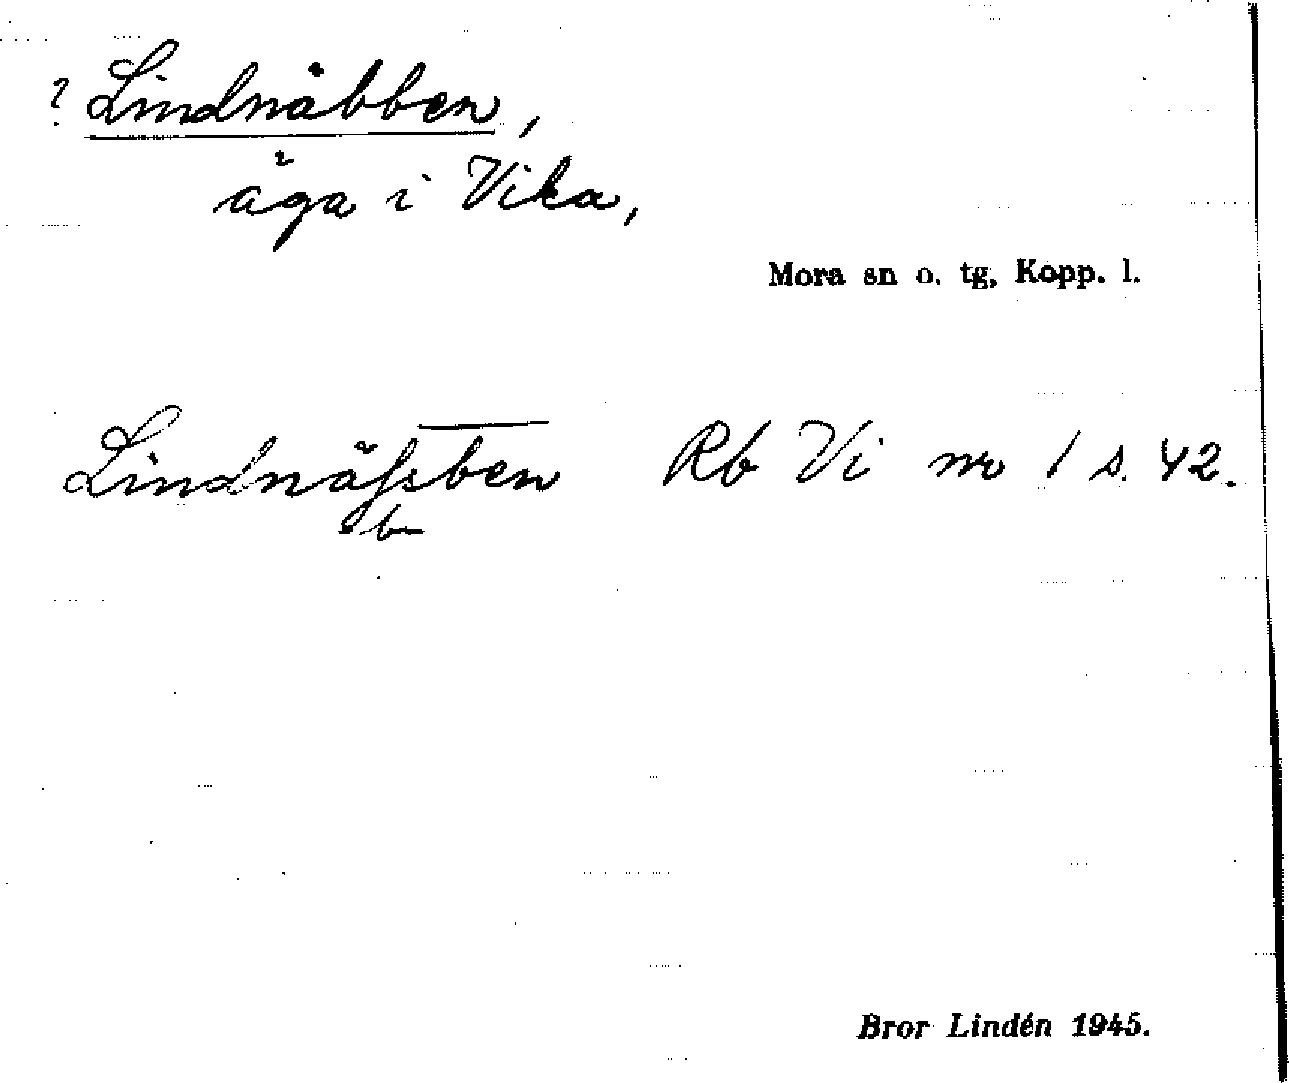 ? Lindnäbben,
äga i Vika,
Mora sn o. tg, Kopp. l.
Lindnäfsben Rb Vi nr 1 s. 42.
b
Bror Lindén 1945.